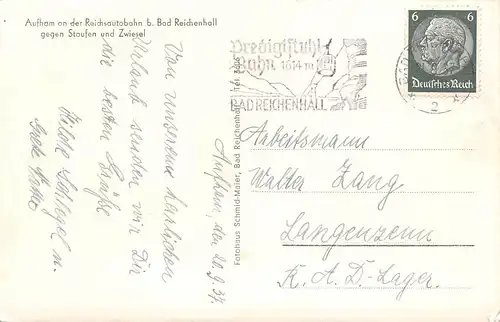 Aufham an der Reichsautobahn b. Bad Reichenhall
gegen Staufen und Zwiesel
Von unserem herrlichen
Urlaub senden wir Dir
die besten Grüße
Hilde Schlegel m.
Aufham, den 20.9.37.
Fotohaus Schmid-Maier, Bad Reichenhall
Predigtstuhl
Bahn 1614 m
BAD REICHENHALL
6 6
Deutsches Reich
2
Arbeitsmann
Walter Zang
Langenzenn
R.A.D-Lager.